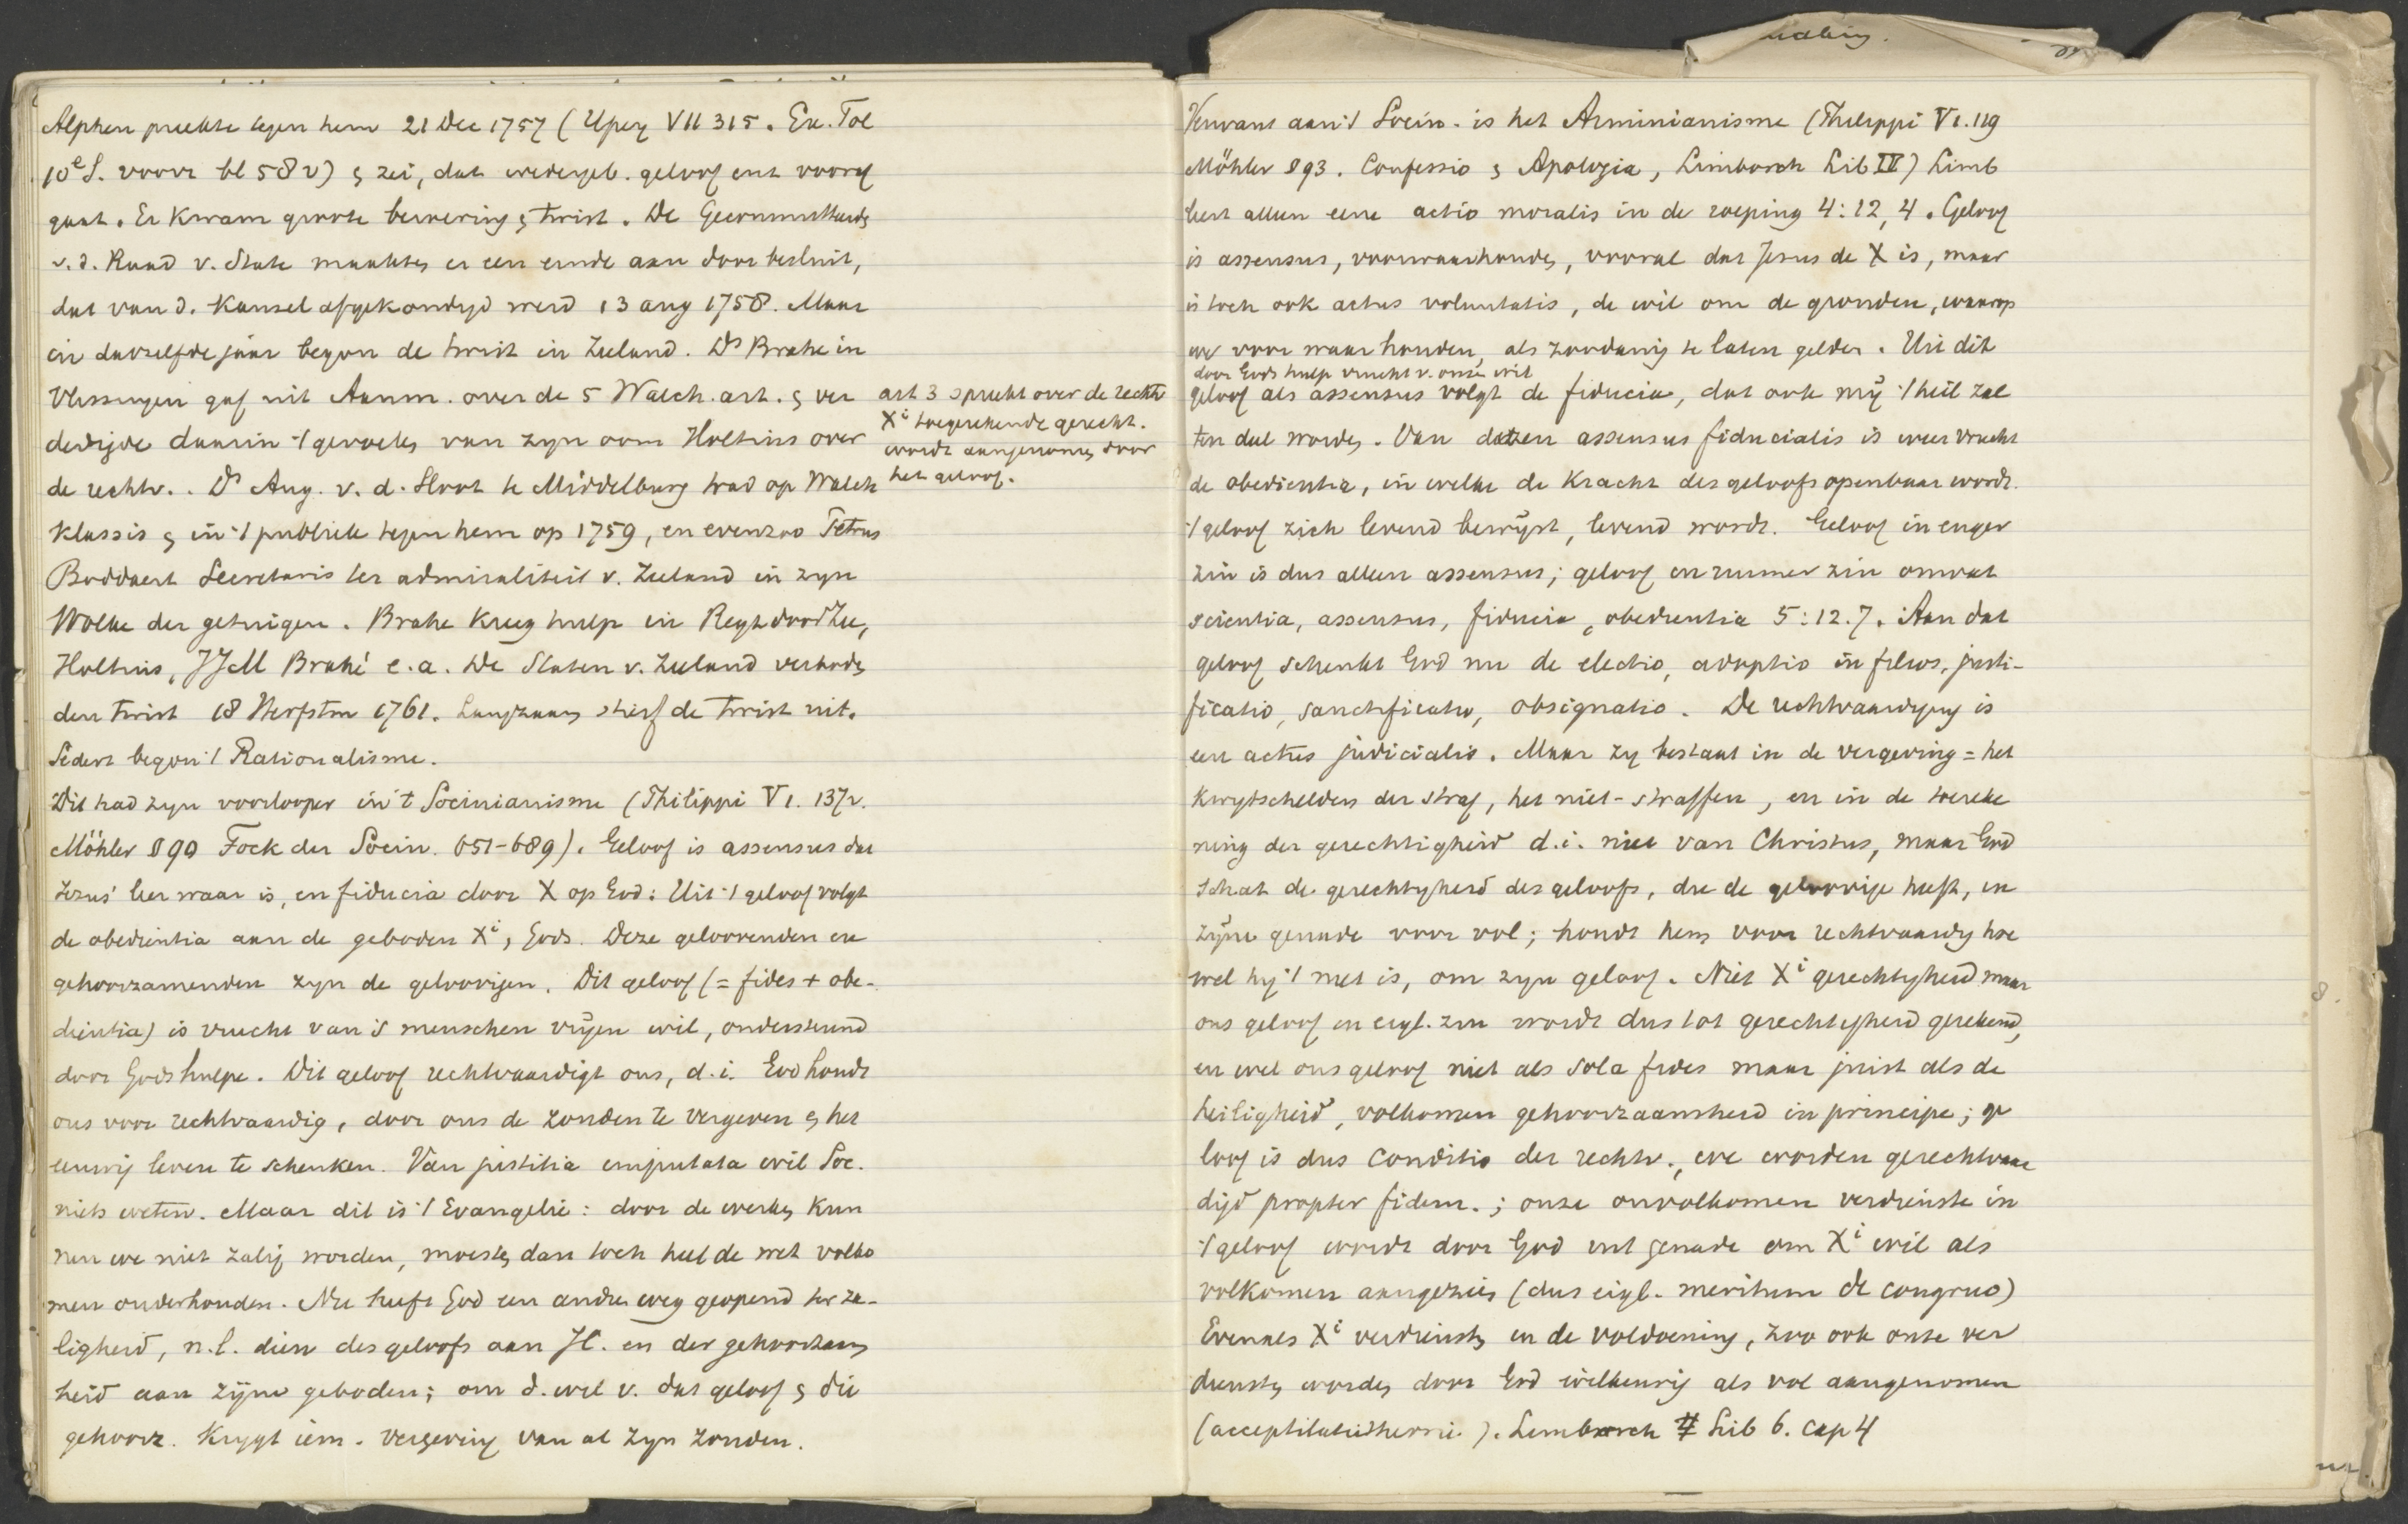 Alphen preekte tegen hem 21 Dec 1757 (Ypey VII 315. Ex. Tol
10e S. voorr bl 58 v) & zei, dat wedergeb. geloof enz vooraf
gaat. Er kwam groote beroering & twist. De Gecommitteerde
v. d. Raad v. State maakten er een einde aan door besluit,
dat van d. kansel afgekondigd werd 13 aug 1758. Maar
in datzelfde jaar begon de twist in Zeeland. Ds Brahe in
Vlissingen gaf uit Aanm. over de 5 Walch. art. & ver
dedigde daarin 't gevoelen van zijn oom Holtius over
de rechtv. . Ds Aug. v. d. Sloot te Middelburg trad op Walch
klassis & in 't publiek tegen hem op 1759, en evenzoo Petrus
Boddaert Secretaris ter admiraliteit v. Zeeland in zijn
Wolke der getuigen. Brahe kreeg hulp in
Holtius, JJM Brahé e.a. De Staten v. Zeeland verboden
den twist 18 Herfstm 1761. Langzaam stierf de twist uit.
Sedert begon 't Rationalisme.
Dit had zijn voorlooper in 't Socinianisme (Philippi V1. 137v.
Möhler S 90 Fock der Socin. 651-689). Geloof is assensus dat
Jezus' leer waar is, en fiducia door X op God: Uit 't geloof volgt
de obedientia aan de geboden Xi, Gods. Deze geloovenden en
gehoorzamenden zijn de geloovigen. Dit geloof (= fides + obe-
dientia) is vrucht van 's menschen vrijen wil, ondersteund
door Gods hulpe. Dit geloof rechtvaardigt ons, d.i. God houdt
ons voor rechtvaardig, door ons de zonden te vergeven & het
eeuwig leven te schenken. Van justitia imputata wil Soc.
niets weten. Maar dit is 't Evangelie: door de werken kun
nen we niet zalig worden, moesten dan toch heel de wet volko
men onderhouden. Nu heeft God een andren weg geopend ter za-
ligheid, n.l. dien des geloofs aan JC. en der gehoorzaam
heid aan zijne geboden; om d. wil v. dat geloof & die
gehoorz. krijgt iem. vergeving van al zijn zonden.
art 3 spreekt over de rechtv
Xi toegerekende gerecht.
wordt aangenomen door
het geloof.
Verwant aan 't Socin. is het Arminianisme (Philippi V1. 119
Möhler S 93. Confessio & Apologia, Limborch Lib IV) Limb
leert alleen eene actio moralis in de roeping 4:12,4. Geloof
is assensus, voorwaarhouden, vooral dat Jezus de X is, maar
is toch ook actus voluntatis, de wil om de gronden, waarop
we voor waar houden, als zoodanig te laten gelden. Uit dit
door Gods hulp vrucht v. onze wil
geloof als assensus volgt de fiducia, dat ook mij 't heil zal
ten deel worden. Van dezen assensus fiducialis is weer vrucht
de obedientia, in welke de kracht des geloofs openbaar wordt.
't geloof zich levend bewijst, levend wordt. Geloof in enger
zin is dus alleen assensus; geloof in ruimer zin omvat
scientia, assensus, fiducia, obedientia 5:12.7. Aan dat
geloof schenkt God nu de electio, adoptio in filios, justi-
ficatio, sanctificatio, obsignatio. De rechtvaardiging is
een actus judicialis. Maar zij bestaat in de vergeving = het
kwijtschelden der straf, het niet-straffen, en in de toereke
ning der gerechtigheid d.i. niet van Christus, maar God
schat de gerechtigheid des geloofs, die de geloovige heeft, in
zijne genade voor vol; houdt hem voor rechtvaardig hoe
wel hij 't niet is, om zijn geloof. Niet Xi gerechtigheid maar
ons geloof in eigl. zin wordt dus tot gerechtigheid gerekend,
en wel ons geloof niet als sola fides maar juist als de
heiligheid, volkomen gehoorzaamheid in principe; ge
loof is dus conditio der rechtv., we worden gerechtvaar
digd propter fidem.; onze onvolkomen verdienste in
't geloof wordt door God uit genade om Xi wil als
volkomen aangezien (dus eigl. meritum de congruo)
Evenals Xi verdiensten in de voldoening, zoo ook onze ver
diensten worden door God willekeurig als vol aangenomen
(acceptilatietheorie). Limborch Lib 6. cap 4